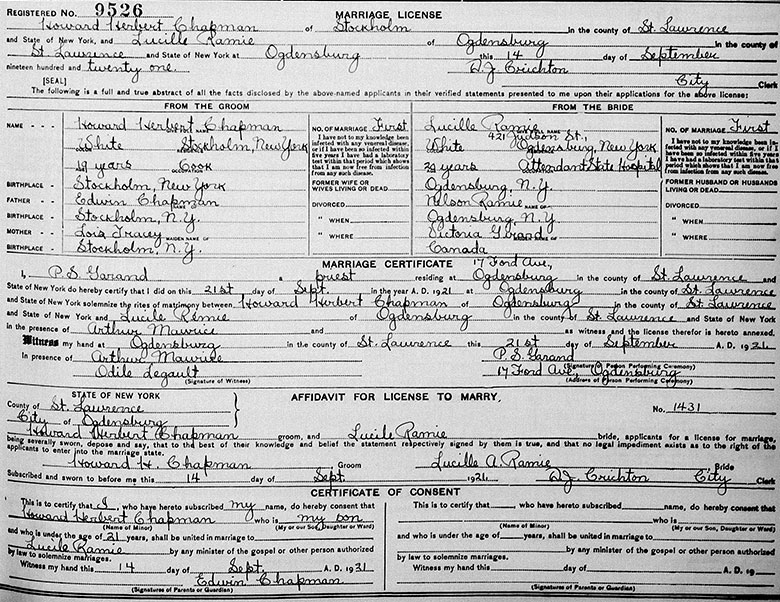 REGISTERED NO. 9526
MARRIAGE LICENSE
Howard Herbert Chapman of Stockholm in the county of St. Lawrence
and State of New York, and Lucille Ramie of Ogdensburg in the county of
St. Lawrence and State of New York at Ogdensburg this 14 day of September
nineteen hundred and twenty one. D.J. Crichton
[SEAL] City Clerk
The following is a full and true abstract of all the facts disclosed by the above-named applicants in their verified statements presented to me upon their applications for the above license:
FROM THE GROOM
NAME - - - Howard Herbert Chapman
White Stockholm, New York
19 years Cook
BIRTHPLACE - Stockholm, New York
FATHER - - Edwin Chapman
BIRTHPLACE - Stockholm, N.Y.
MOTHER - - Lois Tracey
MAIDEN NAME OF
BIRTHPLACE - Stockholm, N.Y.
NO. OF MARRIAGE First
I have not to my knowledge been infected with any venereal disease, or if I have been so infected within five years I have had a laboratory test within that period which shows that I am now free from infection from any such disease.
FORMER WIFE OR WIVES LIVING OR DEAD
DIVORCED
" WHEN
" WHERE
FROM THE BRIDE
Lucille Ramie
421 Judson St.,
White Ogdensburg, New York
years Attendant State Hospital
Ogdensburg, N.Y.
Nelson Ramie
Ogdensburg, N.Y.
Victoria Girard
Canada
NO. OF MARRIAGE First
I have not to my knowledge been infected with any venereal disease, or if I have been so infected within five years I have had a laboratory test within that period which shows that I am now free from infection from any such disease.
FORMER HUSBAND OR HUSBANDS LIVING OR DEAD
DIVORCED
" WHEN
" WHERE
MARRIAGE CERTIFICATE 17 Ford Ave,
I, P.S. Garand a priest residing at Ogdensburg in the county of St. Lawrence and
State of New York do hereby certify that I did on this 21st day of Sept. in the year A. D. 1921 at Ogdensburg in the county of St. Lawrence
and State of New York solemnize the rites of matrimony between Howard Herbert Chapman of Ogdensburg in the county of St. Lawrence
and State of New York and Lucile Ramie of Ogdensburg in the county of St. Lawrence and State of New York
in the presence of Arthur Maurice and as witness and the license therefor is hereto annexed.
Witness my hand at Ogdensburg in the county of St. Lawrence this 21st day of September A. D. 1921
In presence of Arthur Maurice P.S. Garand
(Signature of Person Performing Ceremony)
Odile Legault 17 Ford Ave, Ogdensburg
(Signature of Witness) (Address of Person Performing Ceremony)
STATE OF NEW YORK
AFFIDAVIT FOR LICENSE TO MARRY, No. 1431
County of St. Lawrence
City of Ogdensburg
Howard Herbert Chapman groom, and Lucile Ramie bride, applicants for a license for marriage,
being severally sworn, depose and say, that to the best of their knowledge and belief the statement respectively signed by them is true, and that no legal impediment exists as to the right of the
applicants to enter into the marriage state.
Howard H. Chapman Groom Lucille A. Ramie Bride
Subscribed and sworn to before me this 14 day of Sept. 1921 D.J. Crichton City Clerk
CERTIFICATE OF CONSENT
This is to certify that I, who have hereto subscribed my name, do hereby consent that
Howard Herbert Chapman who is my son
(Name of Minor) (My or our Son, Daughter or Ward)
and who is under the age of 21 years, shall be united in marriage to
Lucile Ramie by any minister of the gospel or other person authorized
by law to solemnize marriages.
Witness my hand this 14 day of Sept. A. D. 1921
Edwin Chapman
(Signatures of Parents or Guardian)
This is to certify that , who have hereto subscribed name, do hereby consent that
who is
(Name of Minor) (My or our Son, Daughter or Ward)
and who is under the age of years, shall be united in marriage to
by any minister of the gospel or other person authorized
by law to solemnize marriages.
Witness my hand this day of A. D. 19
(Signatures of Parents or Guardian)